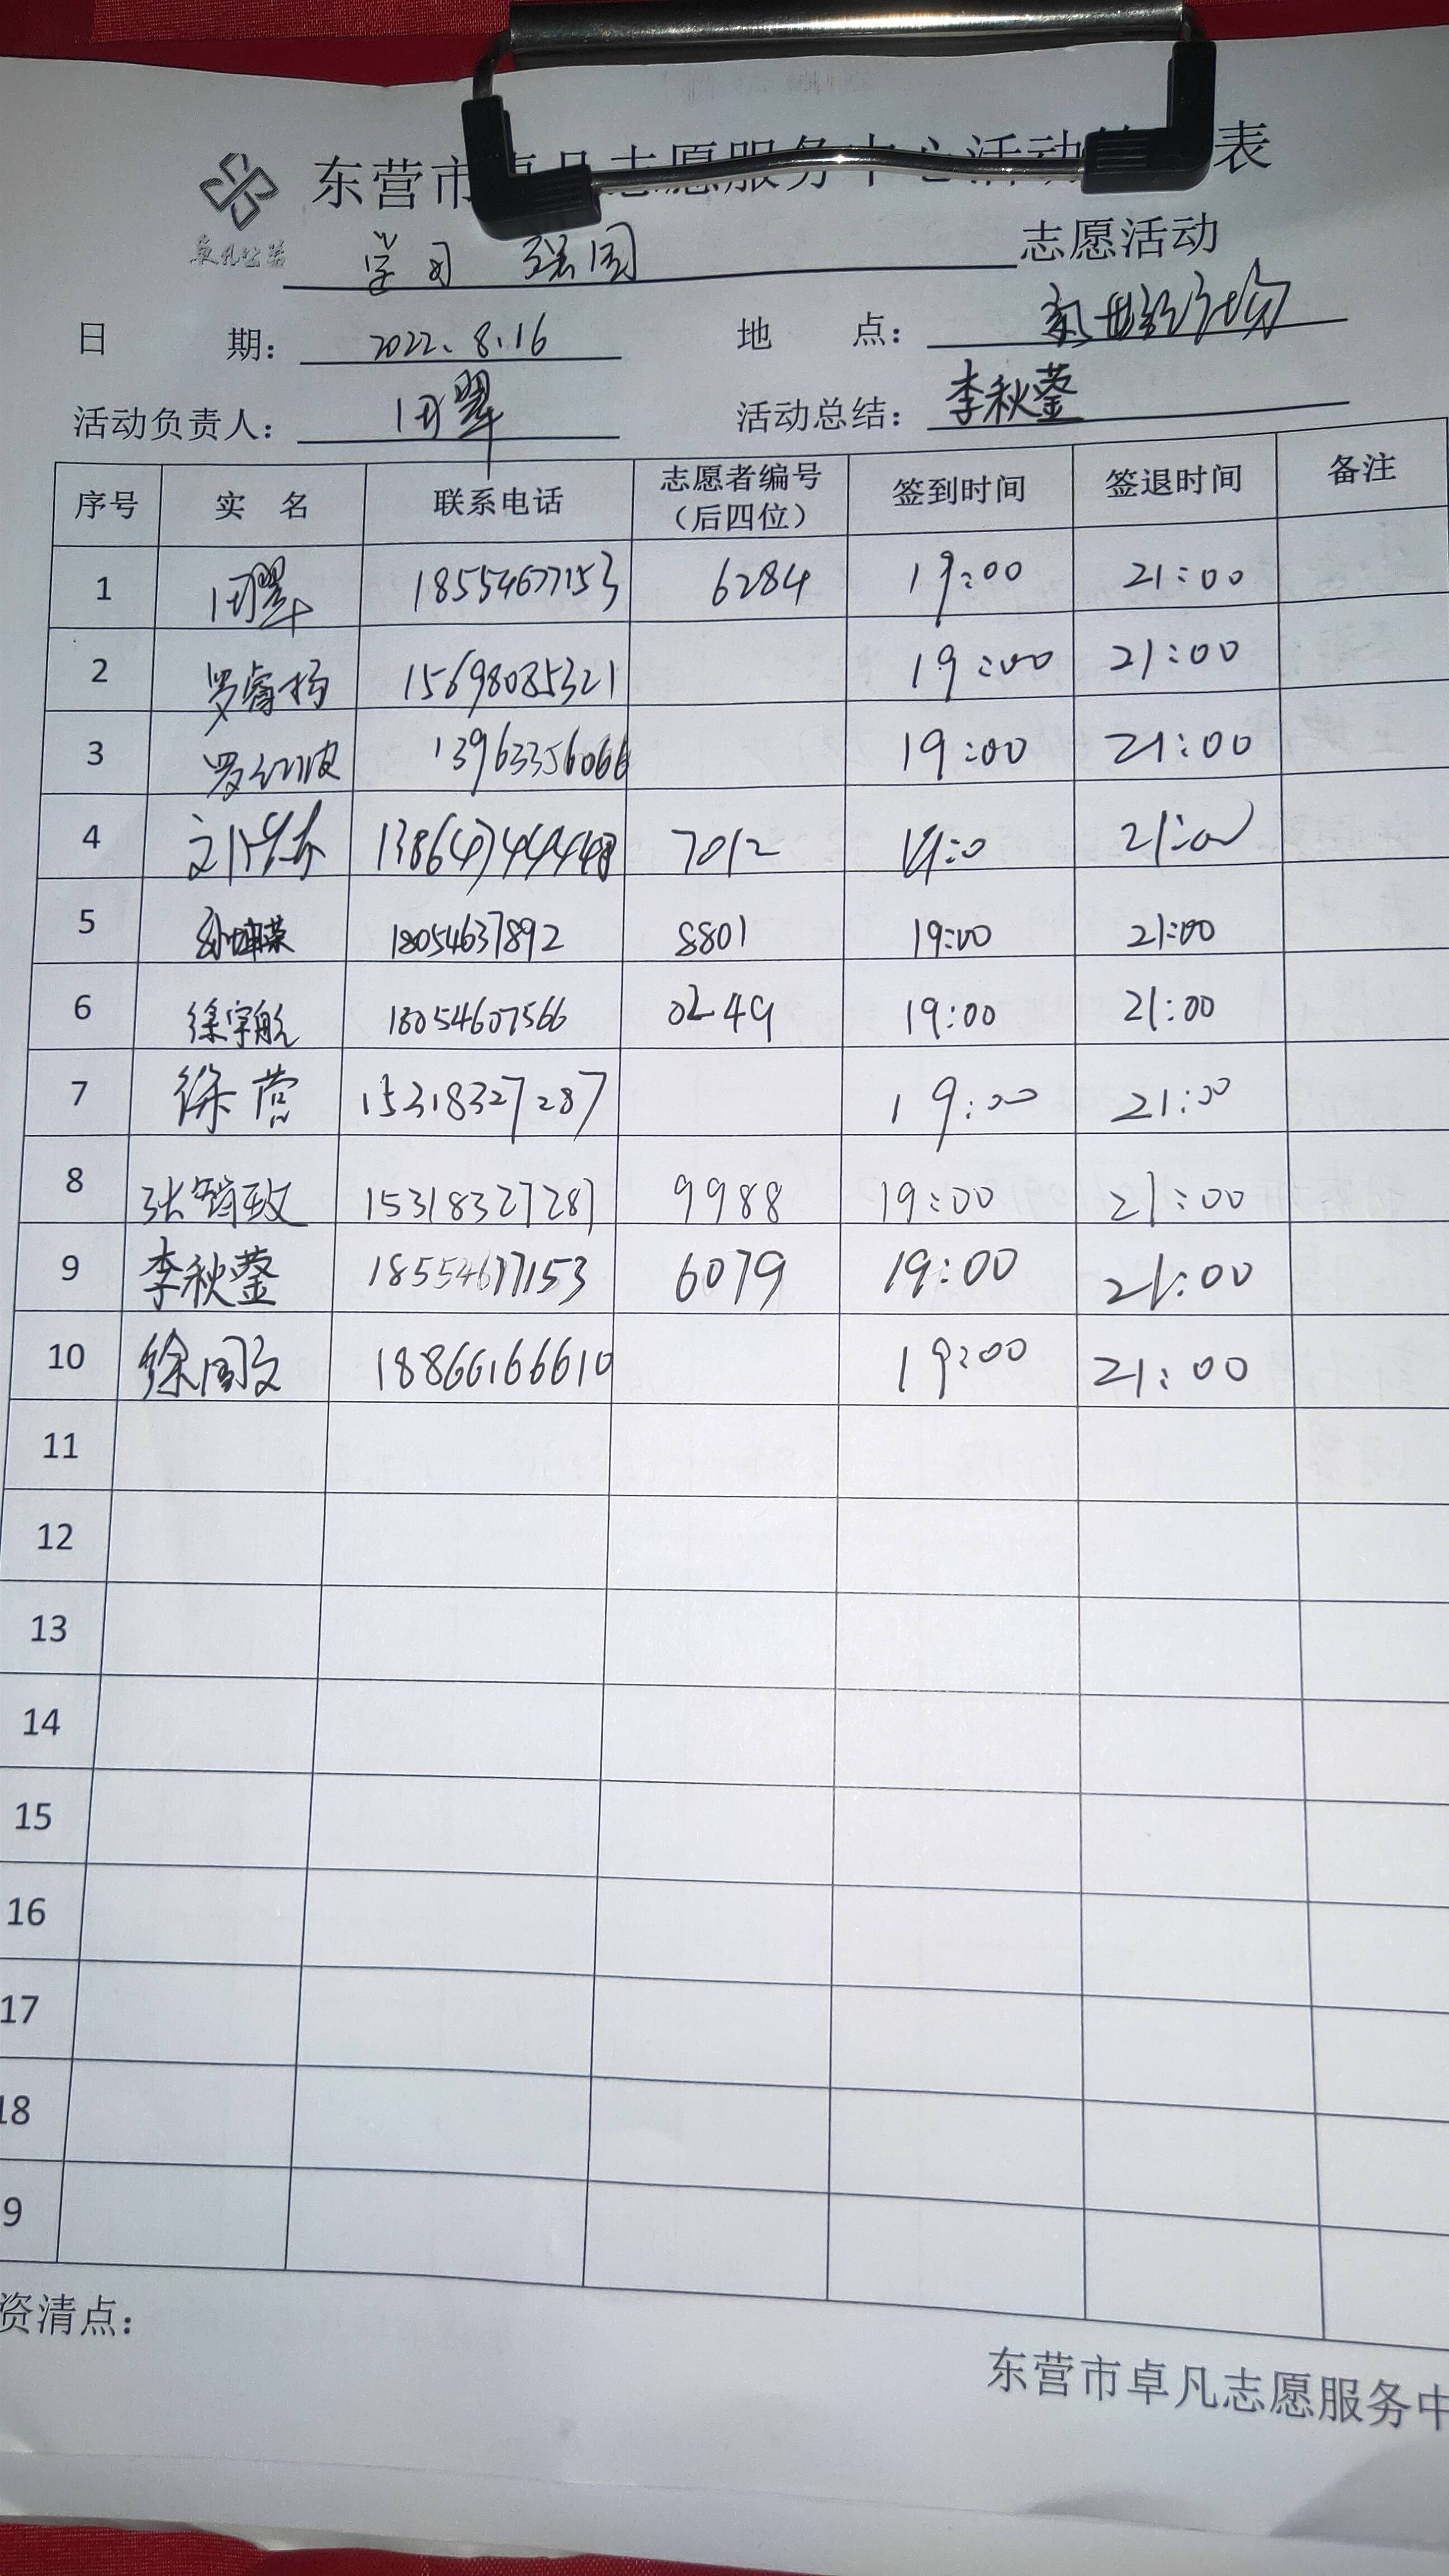 东营市卓凡志愿服务中心活动 表
卓凡公益
学习 强国 志愿活动
日 期: 2022.8.16 地 点:
活动负责人: 田翠 活动总结: 李秋蓥
序号 实 名 联系电话 志愿者编号(后四位) 签到时间 签退时间 备注
1 田翠 18554677153 6284 19:00 21:00
2 罗睿扬 15698085321 19:00 21:00
3 罗红波 13963356066 19:00 21:00
4 7012 21:00
5 18054637892 8801 19:00 21:00
6 徐宇航 18054607566 0249 19:00 21:00
7 徐营 15318327287 19:00 21:00
8 张 致 15318327287 9988 19:00 21:00
9 李秋蓥 18554677153 6079 19:00 21:00
10 徐国文 18866166610 19:00 21:00
11
12
13
14
15
16
17
18
9
资清点:
东营市卓凡志愿服务中